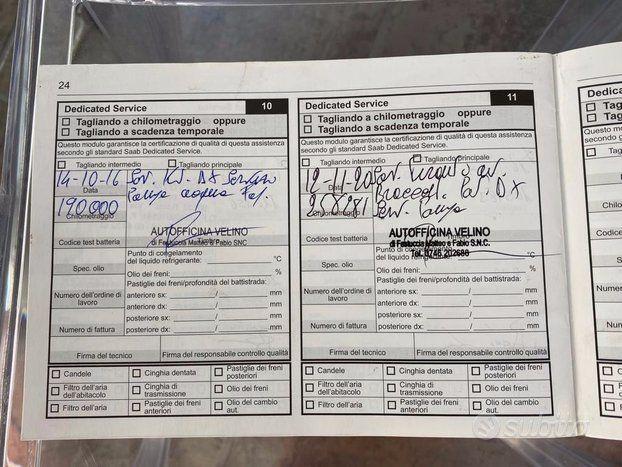 24
Dedicated Service 10
Tagliando a chilometraggio oppure
Tagliando a scadenza temporale
Questo modulo garantisce la certificazione di qualità di questa assistenza
secondo gli standard Saab Dedicated Service.
Tagliando intermedio Tagliando principale
14-10-16
Data
190000
Chilometraggio
AUTOFFICINA VELINO
di Festuccia Matteo e Fabio SNC
Codice test batteria
Punto di congelamento
del liquido refrigerante: °C
Spec. olio
Olio dei freni: %
Pastiglie dei freni/profondità del battistrada:
Numero dell'ordine di
lavoro
anteriore sx: / / mm
anteriore dx: / / mm
posteriore sx: / / mm
Numero di fattura
posteriore dx: / / mm
Firma del tecnico Firma del responsabile controllo qualità
Candele Cinghia dentata Pastiglie dei freni
posteriori
Filtro dell'aria
dell'abitacolo
Cinghia di
trasmissione
Olio dei freni
Filtro dell'aria Pastiglie dei freni
anteriori
Olio del cambio
aut.
Dedicated Service 11
Tagliando a chilometraggio oppure
Tagliando a scadenza temporale
Questo modulo garantisce la certificazione di qualità di questa assistenza
secondo gli standard Saab Dedicated Service.
Tagliando intermedio Tagliando principale
12-11-20
Data
Chilometraggio
AUTOFFICINA VELINO
di Festuccia Matteo e Fabio S.N.C.
Tel. 0746.202680
Codice test batteria
Punto di congelamento
del liquido refrigerante: °C
Spec. olio
Olio dei freni: %
Pastiglie dei freni/profondità del battistrada:
Numero dell'ordine di
lavoro
anteriore sx: / / mm
anteriore dx: / / mm
posteriore sx: / / mm
Numero di fattura
posteriore dx: / / mm
Firma del tecnico Firma del responsabile controllo qualità
Candele Cinghia dentata Pastiglie dei freni
posteriori
Filtro dell'aria
dell'abitacolo
Cinghia di
trasmissione
Olio dei freni
Filtro dell'aria Pastiglie dei freni
anteriori
Olio del cambio
aut.
subito